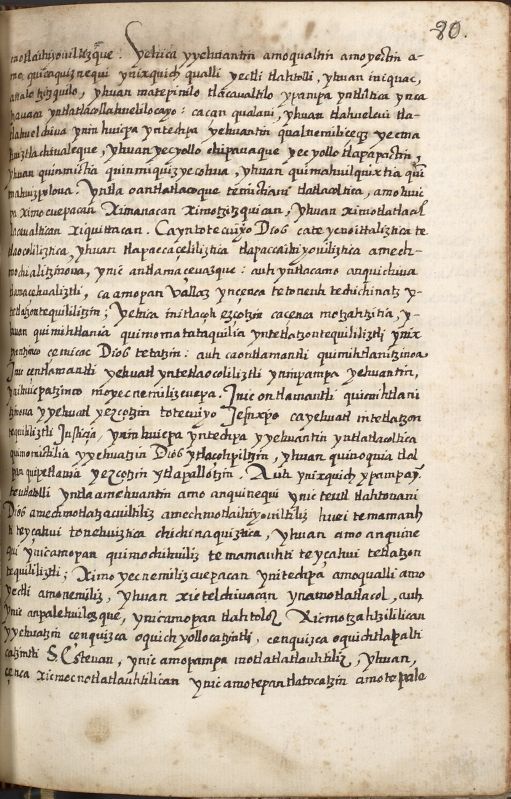 80.
motlaihiyouiltizque: Yehica yyehuantin amo qualtin amo yectin a-
mo, quicaquiznequi ynixquich qualli yectli tlahtolli, yhuan iniquac,
yhuan matepinilo tlacaualtilo ypampa yntlatica ynca
yntlatlacollahuelilocayo: cacan qualani, yhuan tlahuelcui tla-
tlahuelchiva ynin huicpa yntechpa yehuantin qualnemiliceqz yecma-
huiztlachiualeque, yhuan yecyollo chipauaque yec yollo tlapapactin,
yhuan quinmictia quinmiquizyecohua, yhuan quimahuilquixtia qui-
mahuizpolova. Yntla oantlatlacoque temictiani tlatlacoltica, amo huic-
pa ximocuepacan Ximanacan ximotzitzquican, yhuan ximotlatlacol
cavaltican xiquittacan. Cayn totecuiyo Dios cate ycnoittaliztica te
tlaocoliliztica, yhuan tlapaccaceliliztica tlapaccaihiyouiliztica amech-
mochialitzinova, ynic antlamaceuazque: auh yntlacamo anquichiua
tlamacehualiztli, ca amopan vallaz yncenca tetoneuh techichinatz y-
tetlatzontequililitzin; Yehica initlaçoh ezçotzin cacenca motzahtzitia, y-
huan quimihtlania quimomatataquilia yntetlatzontequililiztli ynix
pantzinco cemicac Dios tetatzin: auh caontlamantli quimihtlanitzinoa
Inic centlamantli yehuatl yntetlaocoliliztli ynimpampa yehuantin,
ynihuicpatzinco moyecnemilizcuepa. Inic ontlamantli quimihtlani
tzinova yyehuatl yezçotzin totecuiyo Jesuxpo ca yehuatl intetlatzon
tequililiztli Justicia, ynin huicpa yntechpa yyehuantin yntlatlacoltica
quimomictilia yyehuatzin Dios ytlaçohpiltzin, yhuan quinoquia tlal
pan quipetlania yezçotzin ytlapallotzin. Auh ynixquich ypampay
teutlatolli yntla amehuantin amo anquinequi ynic teutl tlahtouani
Dios amechmotlatzacuiltiliz amechmotlaihiyouiltiliz huei temamauh
ti teycahui tonehuiztica chichinaquiztica, yhuan amo anquine
qui ynicamopan quimochihuiliz temamauhti teycahui tetlatzon
tequililiztli; Ximoyecnemilizcuepacan ynitechpa amoqualli amo
yectli amonemiliz, yhuan xictelchiuacan ynamotlatlacol, auh
ynic anpalehuilozque, ynicamopan tlahtoloz Xicmotzahtzililican
yyehuatzin cenquizca oquichyollocatzintli, cenquizca oquichtlapalti
catzintli S. Esteuan, ynic amopampa motlatlatlauhtiliz, yhuan,
cenca xicmocnotlatlauhtilican ynic amotepantlatocatzin amotepale